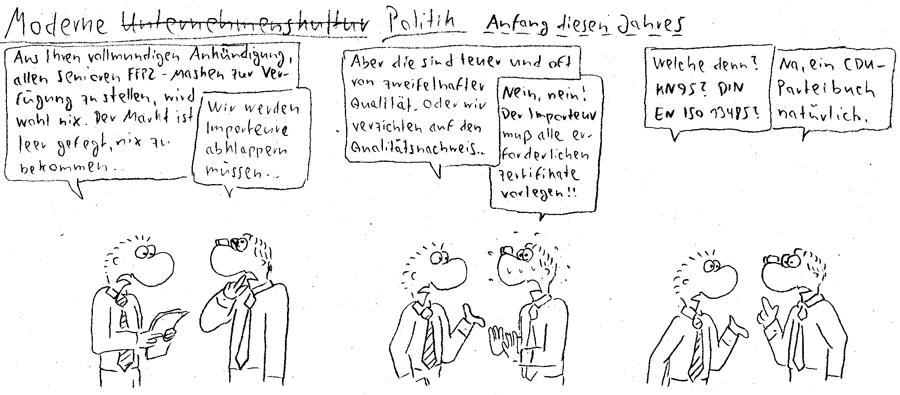 Moderne Unternehmenskultur Politik Anfang diesen Jahres
Aus Ihren vollmundigen Ankündigung,
allen Senioren FFP2-Masken zur Ver-
fügung zu stellen, wird
wohl nix. Der Markt ist
leer gefegt, nix zu
bekommen...
Wir werden
Importeure
abklappern
müssen...
Aber die sind teuer und oft
von zweifelhafter
Qualität. Oder wir
verzichten auf den
Qualitätsnachweis...
Nein, nein!
Der Importeur
muß alle er-
forderlichen
Zertifikate
vorlegen!!
Welche denn?
KN95? DIN
EN ISO 13485?
Na, ein CDU-
Parteibuch
natürlich.